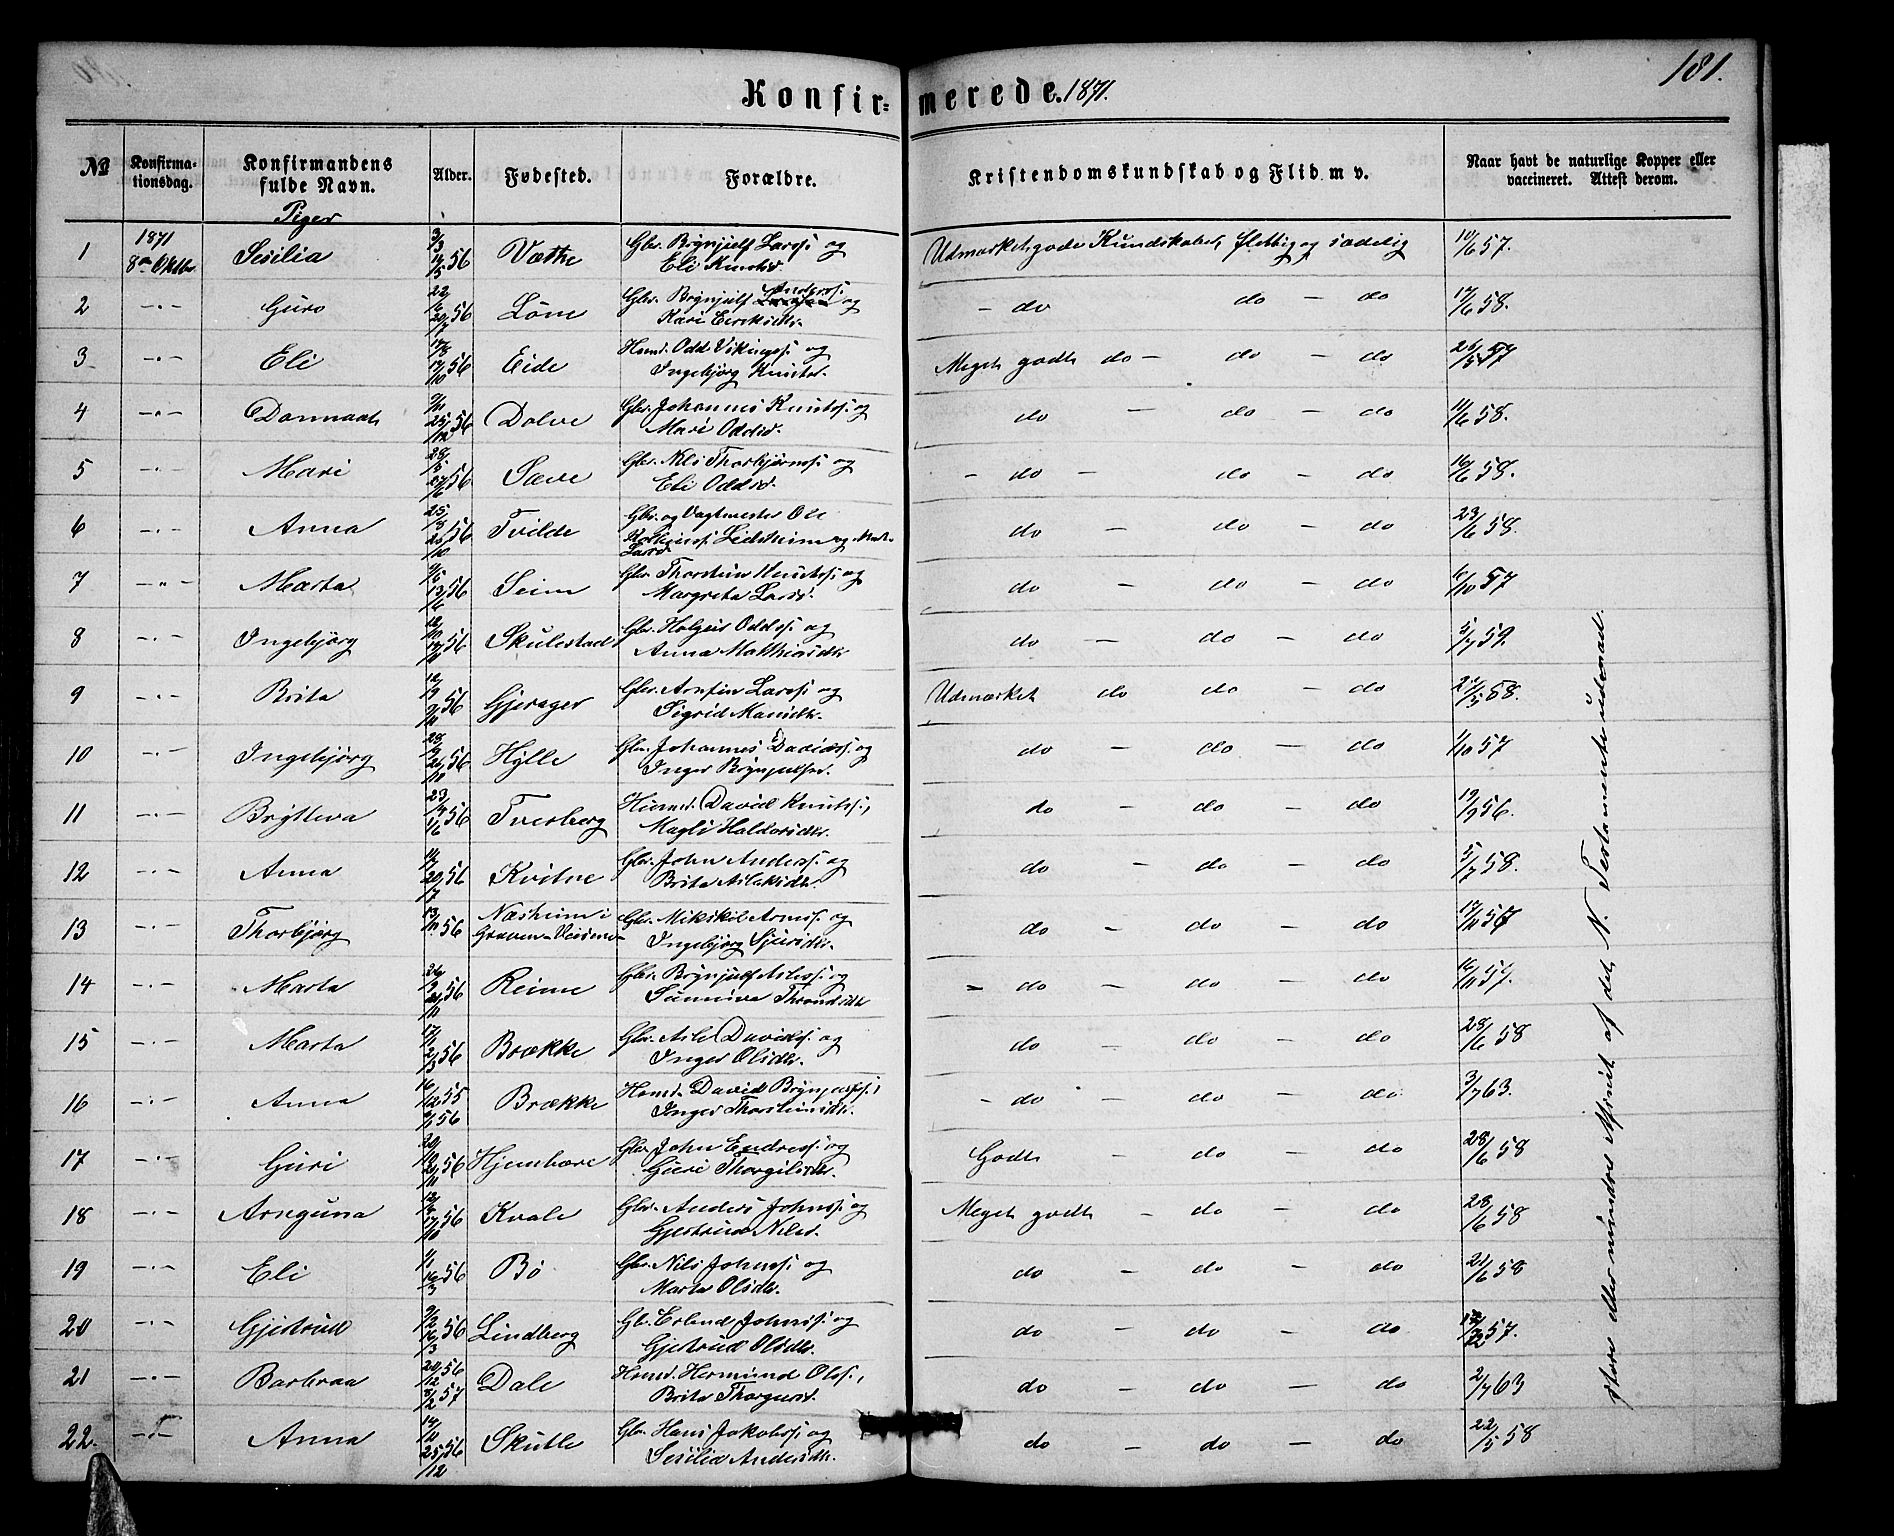 181.
Konfirmerede. 1871.
№ Konfirmationsdag. Konfirmandens fulde Navn. Alder. Fødested. Forældre. Kristendomskundskab og Flid m v. Naar havt de naturlige Kopper eller vaccineret. Attest derom.
Piger
1 1871 8de Oktbr. Sesilia 3/3 14/5 56 Væthe Gbr. Brynjulf Larss. og Eli Knutsd. Udmærket gode Kundskaber, flittig og sædelig 10/6 57.
2 -"- Guro 22/6 20/7 56 Løne Gbr. Brynjulf Anderss. og Kari Eiriksdtr. - do do - do 17/6 58.
3 -"- Eli 17/8 17/10 56 Eide Husmd. Odd Vikingss. og Ingebjørg Knutsd. Meget godt do - do - do 26/5 57
4 -"- Danmaat 7/11 25/12 56 Dolve Gbr. Johannes Knutss. og Mari Oddsd. do - do - do 11/6 58.
5 -"- Mari 28/5 27/6 56 Sæve Gbr. Nils Thorbjørnss. og Eli Oddsd. - do - do - do 16/6 58.
6 -"- Anna 25/8 25/10 56 Tvilde Gbr. og Vagtmester Ole Lidsheim og Larsd. do - do - do 23/6 58.
7 -"- Marta 9/5 13/6 56 Seim Gbr. Thorstein Knutss. og Margreta Larsd. do - do - do 6/10 57
8 -"- Ingebjørg 12/10 17/11 56 Skulestad Gbr. Holgeir Oddss. og Anna Matthiasdtr. do - do - do 5/7 59.
9 -"- Brita 12/9 9/11 56 Gjerager Gbr. Arnfin Larss. og Sigrid Mansdtr. Udmærket do - do - do 21/5 58.
10 -"- Ingebjørg 28/9 26/10 56 Hylle Gbr. Johannes Davidss. og Inger Brynjulfsd. do - do - do 1/10 57
11 -"- Brytteva 23/4 1/6 56 Tverberg Husmd. David Knutss., Magli Haldorsdtr. do - do - do 19/9 56.
12 -"- Anna 11/7 20/7 56 Kvitne Gbr. John Anderss. og Brita Aslaksdtr. do - do - do 5/7 58.
13 -"- Thorbjørg 13/11 56 Næsheim i Graven Gbr. Mikkel Arness. og Ingebjørg Sjursdtr. do - do - do 17/11 57
14 -"- Marta 26/9 21/11 56 Reime Gbr. Brynjulf Asless. og Sunniva Throndsdtr. - do - do - do 16/11 57.
15 -"- Marta 17/1 2/3 56 Brække Gbr. Asle Davidss. og Inger Olsdtr. do - do - do 28/6 58
16 -"- Anna 16/12 55 56 Brække Husmd. David Brynjulfss., Inger Thorsteinsdtr. - do - do - do 3/7 63.
17 -"- Guri 20/10 21/11 56 Hjembære Gbr. John Endress. og Guri Thorgilsdtr. Godt - do - do 28/6 58
18 -"- Arnguna 12/9 17/10 56 Kvale Gbr. Anders Johnss. og Gjertrud Nilsd. Meget godt - do - do 28/6 58
19 -"- Eli 1/1 16/3 56 Bø Gbr. Nils Johnss. og Marta Olsdtr. do - do - do 21/6 58
20 -"- Gjertrud 9/2 16/3 56 Lindberg Gbr. Erlend Johnss. og Gjertrud Olsdtr. do - do - do 57.
21 -"- Barbraa 20/12 56 8/2 57 Dale Husmd. Hermund Olss., Brita Thorgersd. do - do - do 2/7 63
22. -"- Anna 14/11 25/12 56 Skutle Gbr. Hans Jakobss. og Sesilia Andersdtr. do - do - do 22/5 58
større eller mindre Afsnit af det N. Testamente udenad.